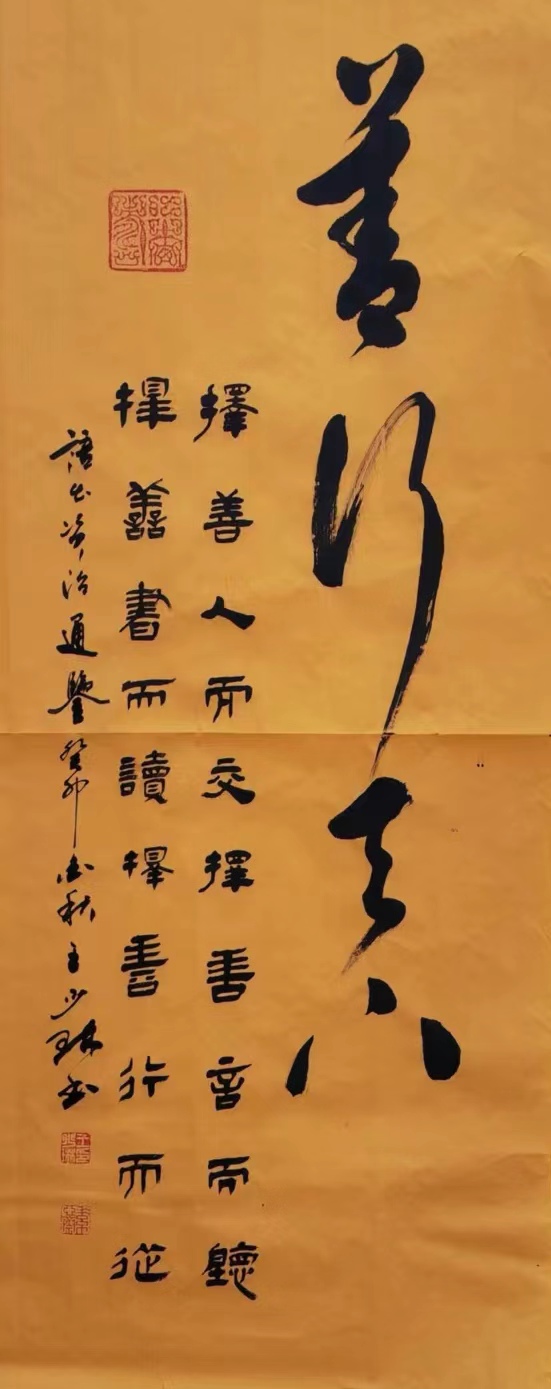 善行天下
擇善人而交擇善言而聽
擇善書而讀擇善行而從
語出資治通鑒癸卯金秋王少球書